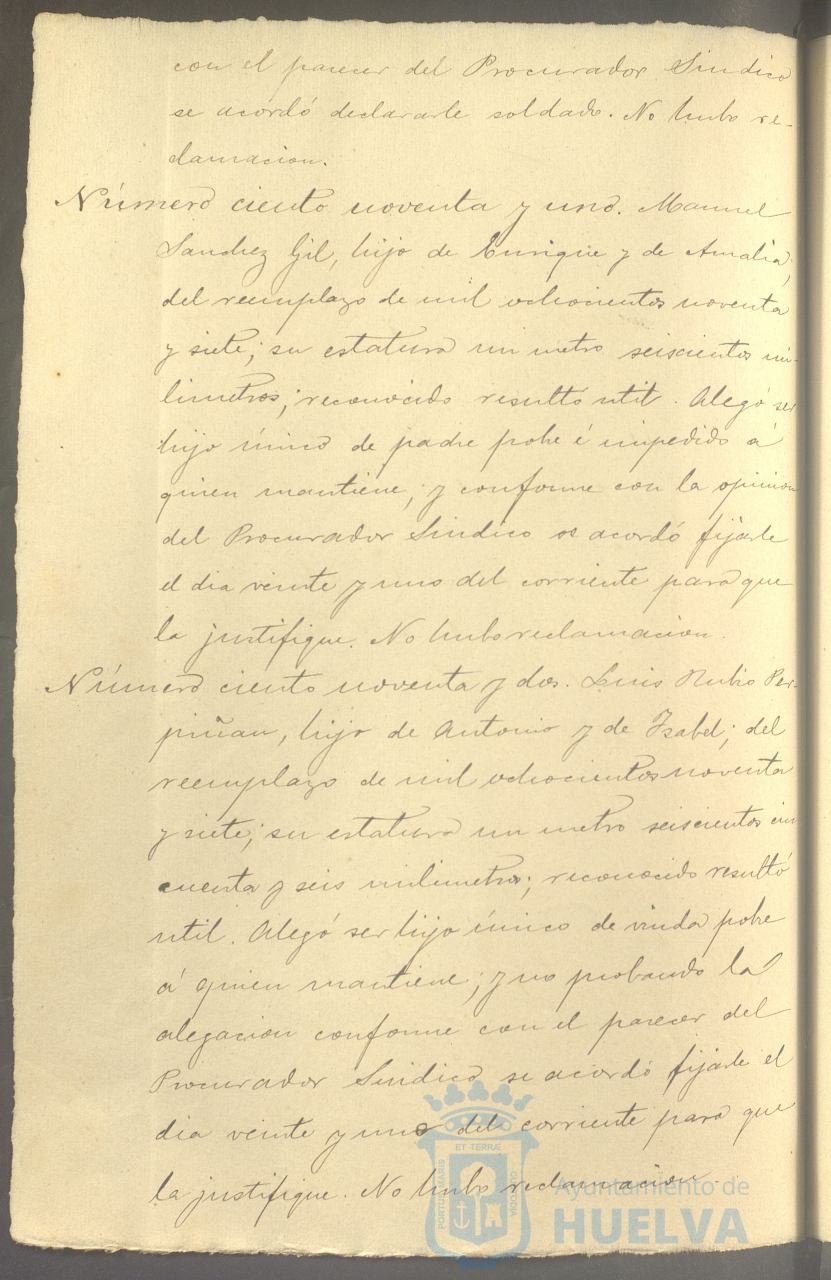 con el parecer del Procurador Sindico
se acordó declararle soldado. No hubo re-
clamacion.
Número ciento noventa y uno. Manuel
Sanchez Gil, hijo de Enrique y de Amalia,
del reemplazo de mil ochocientos noventa
y siete; su estatura un metro seiscientos mi-
limetros; reconocido resultó util. Alegó ser
hijo único de padre pobre é impedido á
quien mantiene; y conforme con la opinion
del Procurador Sindico se acordó fijarle
el dia veinte y uno del corriente para que
la justifique. No hubo reclamacion.
Número ciento noventa y dos. Luis Rubio Per-
piñan, hijo de Antonio y de Isabel; del
reemplazo de mil ochocientos noventa
y siete; su estatura un metro seiscientos cin
cuenta y seis milimetros; reconocido resultó
util. Alegó ser hijo único de viuda pobre
á quien mantiene; y no probando la
alegacion conforme con el parecer del
Procurador Sindico se acordó fijarle el
dia veinte y uno del corriente para que
la justifique. No hubo reclamacion.
ET TERRÆ
PORTUS MARIS
CUSTODIA
Ayuntamiento de
HUELVA